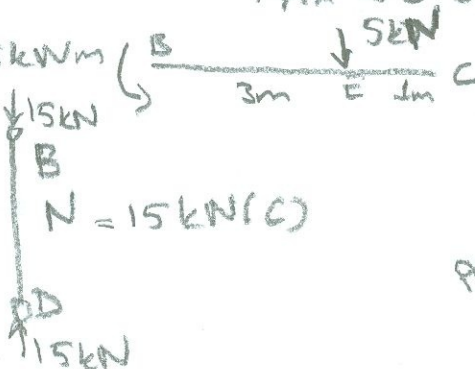 5kN
kNm B
3m E 1m C
15kN
B
N = 15kN(C)
D
15kN